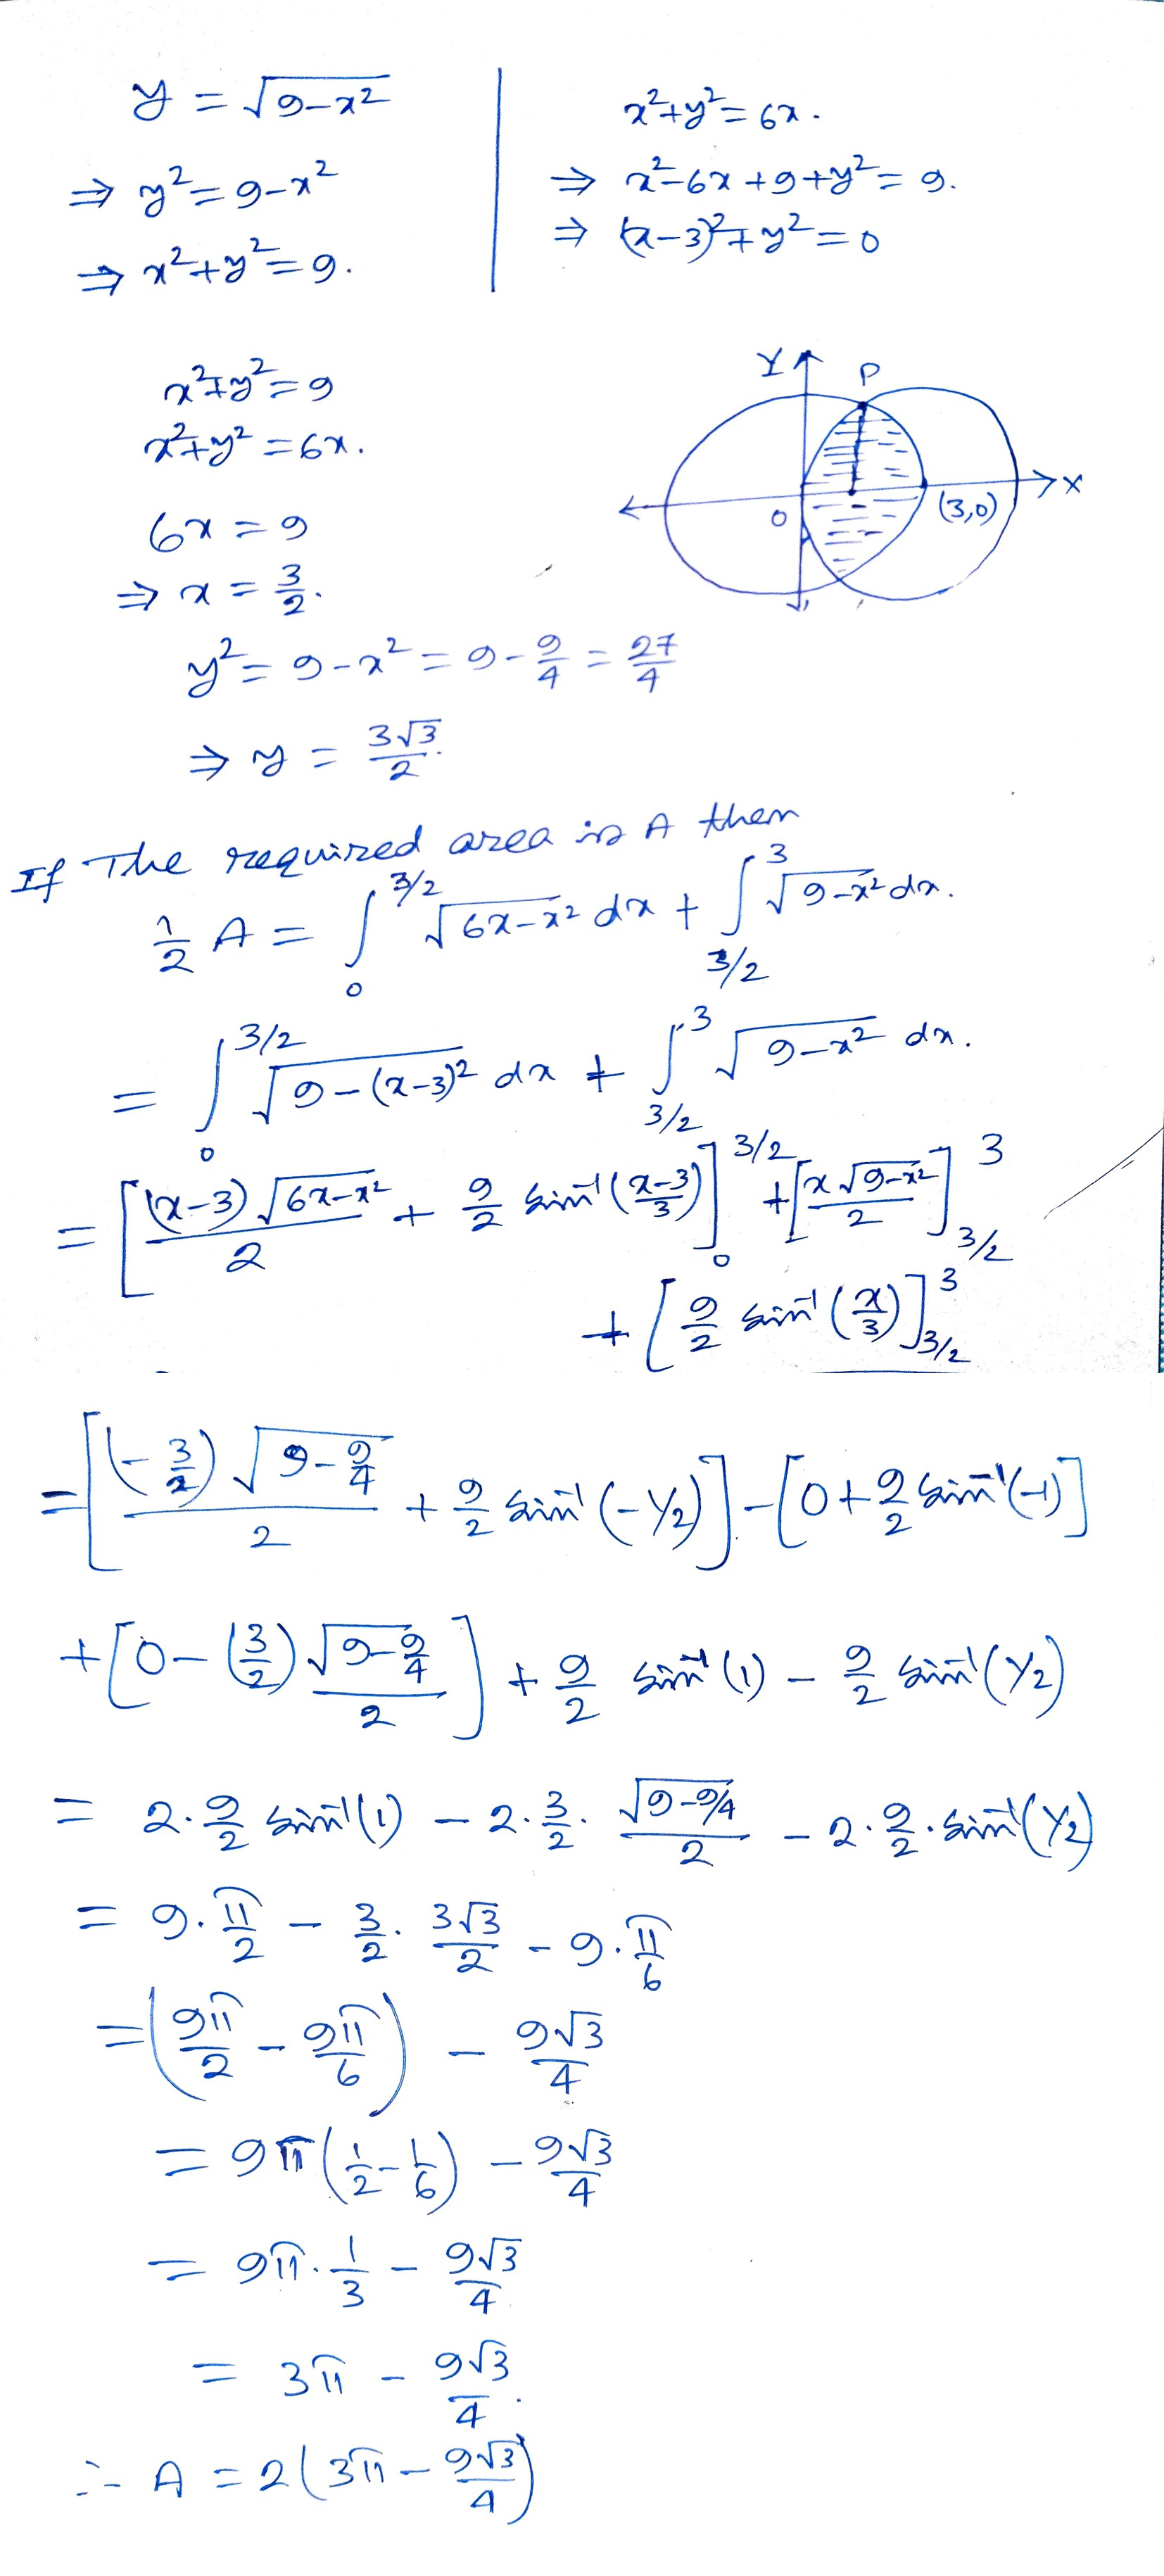 y = √9-x²
⇒ y² = 9-x²
⇒ x²+y² = 9.
x²+y² = 6x.
⇒ x²-6x+9+y² = 9.
⇒ (x-3)²+y² = 0
x²+y² = 9
x²+y² = 6x.
6x = 9
⇒ x = 3/2.
Y P
X
O (3,0)
y² = 9-x² = 9-9/4 = 27/4
⇒ y = 3√3/2.
If The required area is A then
1/2 A = ∫₀^{3/2} √6x-x² dx + ∫_{3/2}^{3} √9-x² dx.
= ∫₀^{3/2} √9-(x-3)² dx + ∫_{3/2}^{3} √9-x² dx.
= [(x-3)√6x-x²/2 + 9/2 sin⁻¹(x-3/3)]₀^{3/2} + [x√9-x²/2]_{3/2}^{3}
+ [9/2 sin⁻¹(x/3)]_{3/2}^{3}
= [(-3/2)√9-9/4/2 + 9/2 sin⁻¹(-1/2)] - [0+9/2 sin⁻¹(-1)]
+ [0-(3/2)√9-9/4/2] + 9/2 sin⁻¹(1) - 9/2 sin⁻¹(1/2)
= 2.9/2 sin⁻¹(1) - 2.3/2.√9-9/4/2 - 2.9/2.sin⁻¹(1/2)
= 9.π/2 - 3/2.3√3/2 - 9.π/6
= (9π/2 - 9π/6) - 9√3/4
= 9π(1/2-1/6) - 9√3/4
= 9π.1/3 - 9√3/4
= 3π - 9√3/4.
∴ A = 2(3π - 9√3/4)